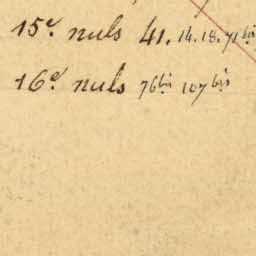 15e. nuls 41. 14. 18. 71 bis
16e. nuls 76 bis 107 bis